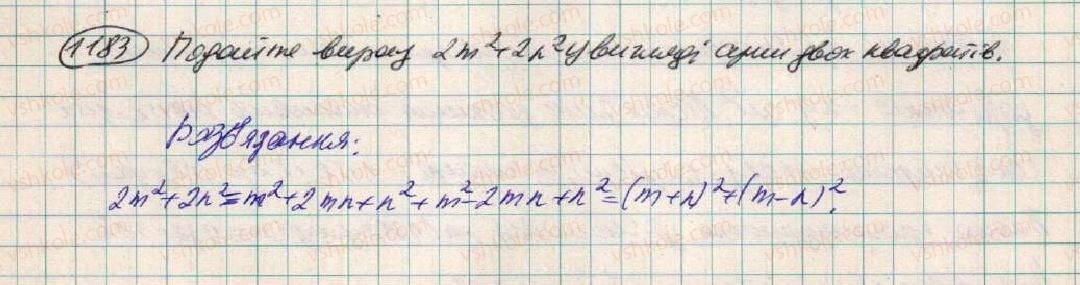 1183 Подайте вираз 2m²+2n² у вигляді суми двох квадратів.
Розв'язання:
2m²+2n²=m²+2mn+n²+m²-2mn+n²=(m+n)²+(m-n)².